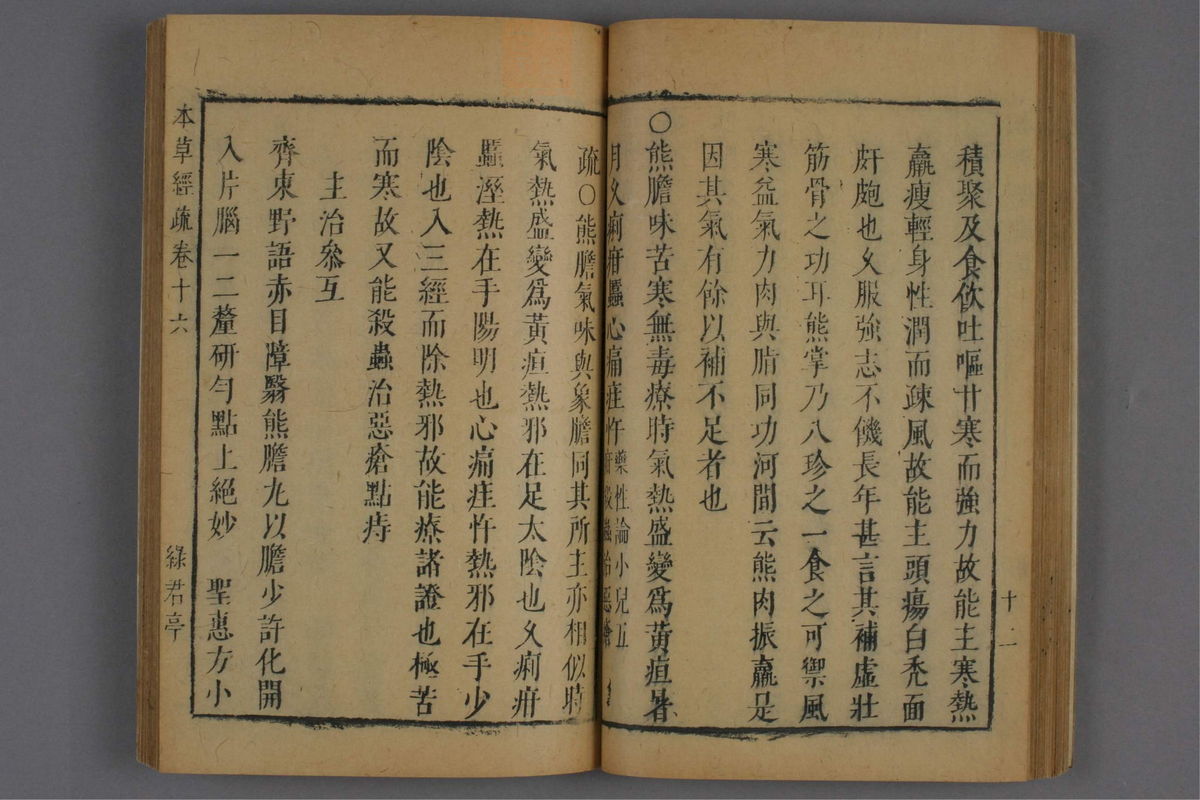 積聚及食飲吐嘔甘寒而強力故能主寒熱
羸瘦輕身性潤而疎風故能主頭瘍白禿面
皯皰也久服強志不饑長年甚言其補虛壯
筋骨之功耳熊掌乃八珍之一食之可禦風
寒益氣力肉與脂同功河間云熊肉振羸是
因其氣有餘以補不足者也
〇熊膽味苦寒無毒療時氣熱盛變爲黃疸暑
月久痢疳䘌心痛疰忤
藥性論小兒五
疳殺蟲治惡瘡
疏〇熊膽氣味與象膽同其所主亦相似時
氣熱盛變爲黃疸熱邪在足太陰也久痢疳
䘌溼熱在手陽明也心痛疰忤熱邪在手少
陰也入三經而除熱邪故能療諸證也極苦
而寒故又能殺蟲治惡瘡點痔
主治參互
齊東野語赤目障翳熊膽丸以膽少許化開
入片腦一二釐研勻點上絕妙 聖惠方小
本草經疏卷十六
綠君亭
十二